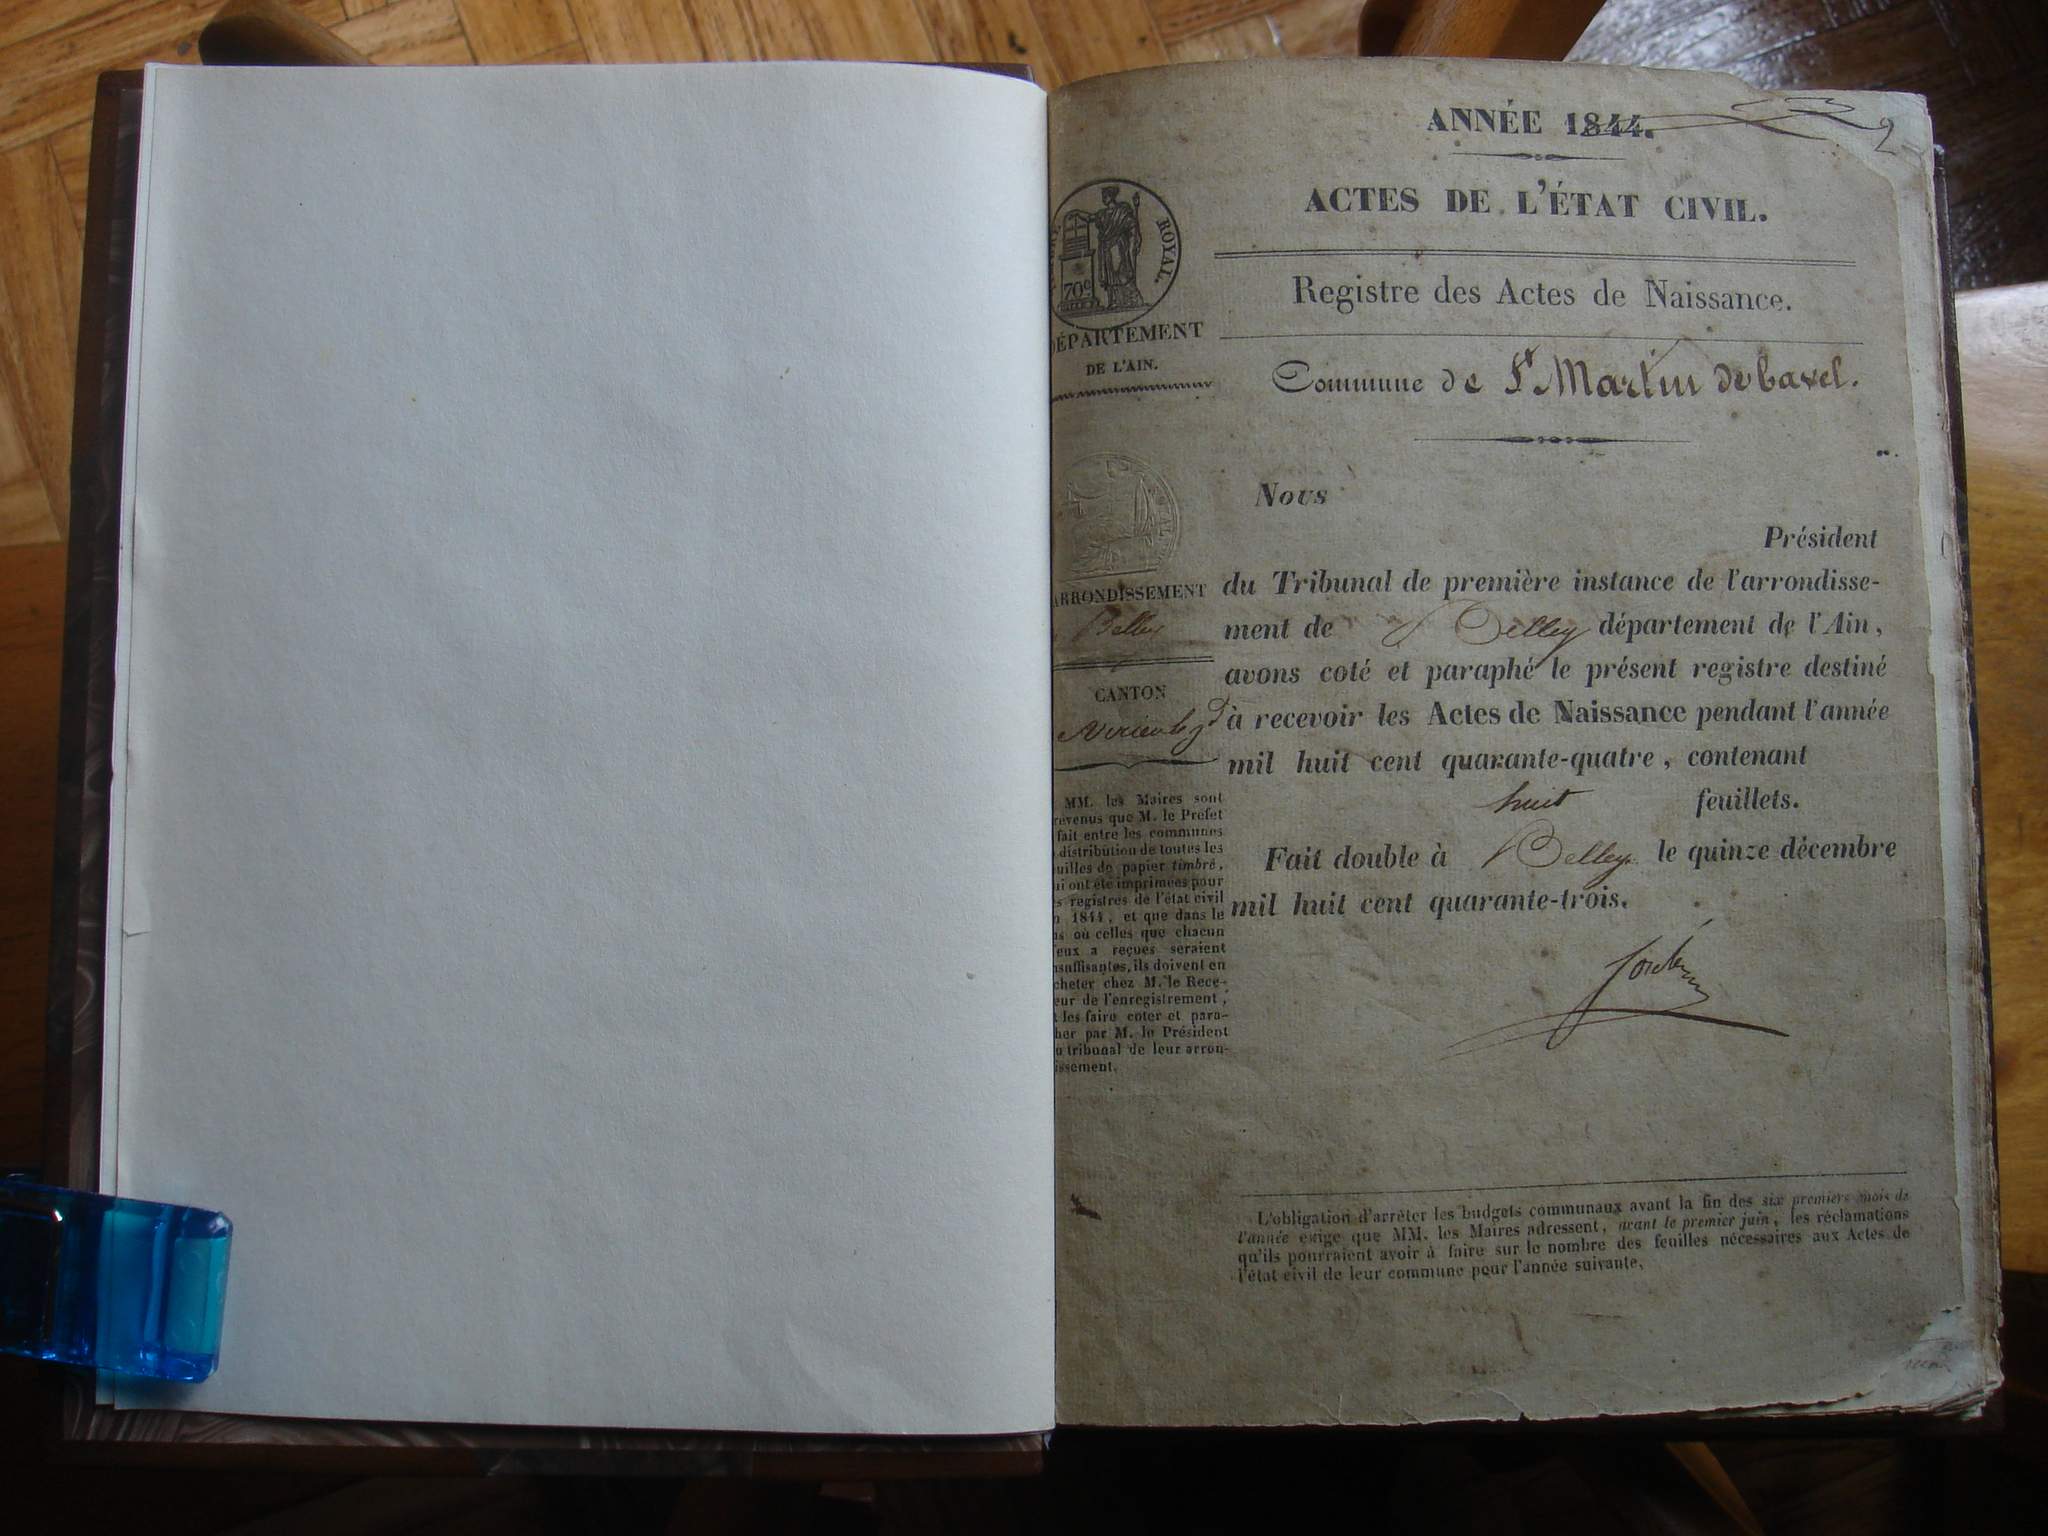 ANNÉE 1844.
2
ACTES DE L'ÉTAT CIVIL.
ROYAL.
70c
Registre des Actes de Naissance.
DÉPARTEMENT
DE L'AIN.
Commune de St Martin de bavel.
Nous
Président
du Tribunal de première instance de l'arrondisse-
ment de Belley département de l'Ain,
avons coté et paraphé le présent registre destiné
à recevoir les Actes de Naissance pendant l'année
mil huit cent quarante-quatre, contenant
huit feuillets.
Fait double à Belley le quinze décembre
mil huit cent quarante-trois.
ARRONDISSEMENT
Belley
CANTON
MM. les Maires sont
révenus que M. le Préfet
fait entre les communes
distribution de toutes les
uilles de papier timbré,
ui ont été imprimées pour
s registres de l'état civil
n 1844, et que dans le
as où celles que chacun
'eux a reçues seraient
nsuffisantes, ils doivent en
cheter chez M. le Rece-
eur de l'enregistrement,
t les faire coter et para-
her par M. le Président
u tribunal de leur arron-
issement.
L'obligation d'arrêter les budgets communaux avant la fin des six premiers mois de
l'année exige que MM. les Maires adressent, avant le premier juin, les réclamations
qu'ils pourraient avoir à faire sur le nombre des feuilles nécessaires aux Actes de
l'état civil de leur commune pour l'année suivante.